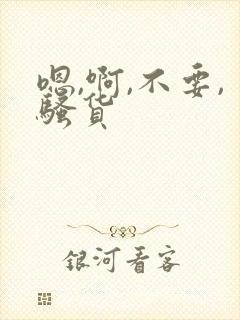 嗯,啊,不要,
骚货
银河看客